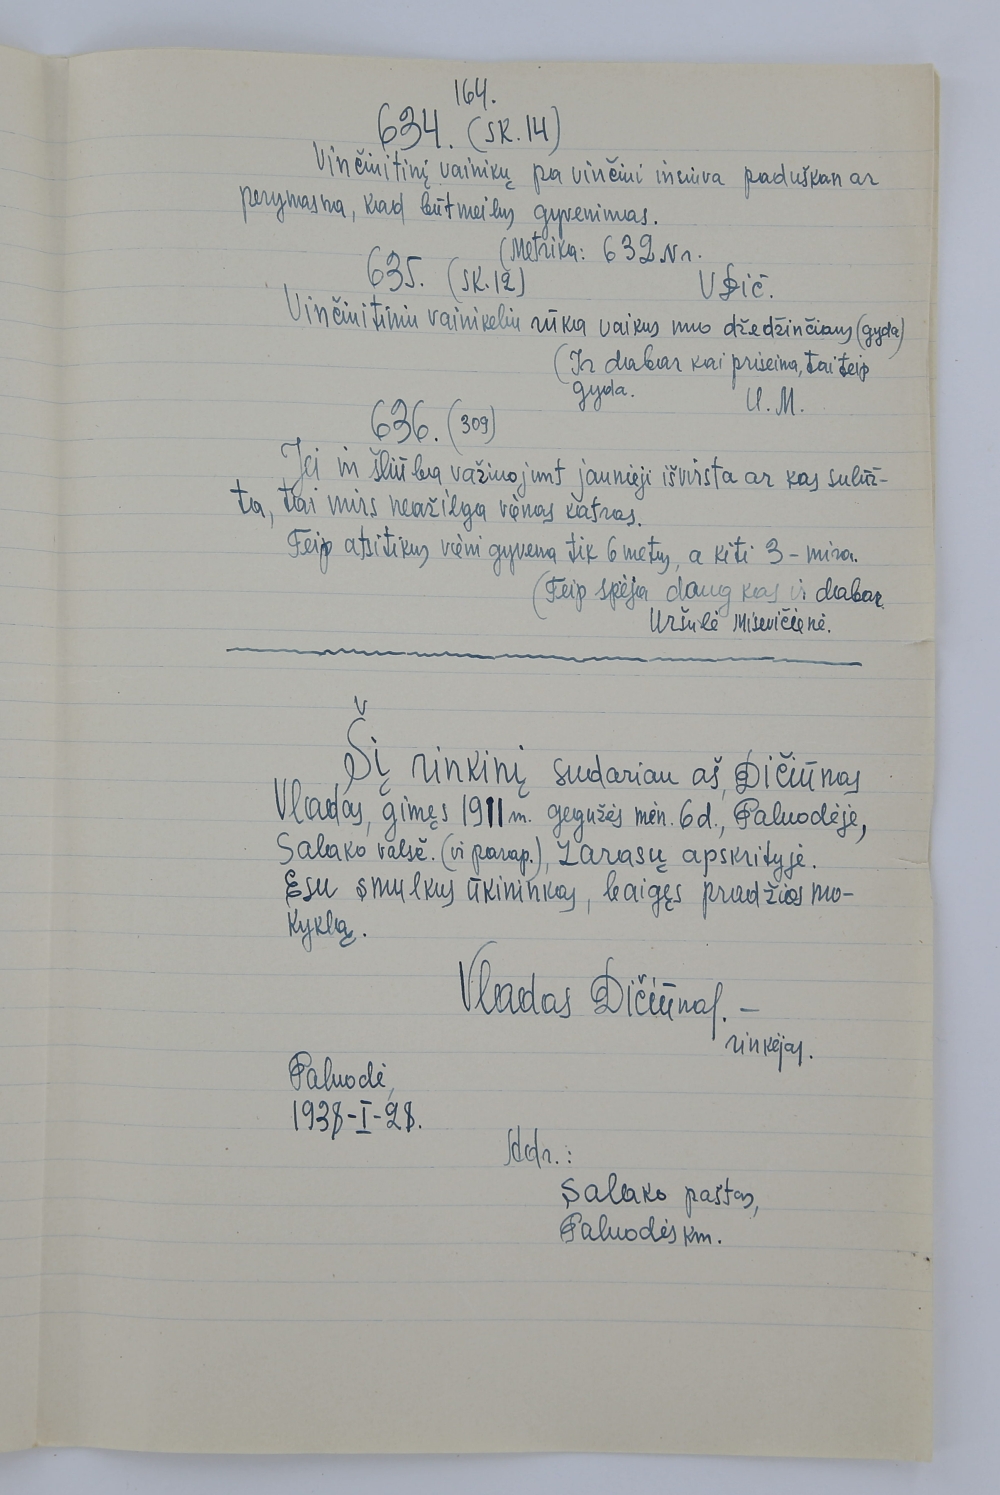 164.
634. (SK.14)
Vinčiuitinį vainikų pa vinčiui insiuva paduškan ar
perynasna, kad būt meilus gyvenimas.
(Metrika: 632 Nr.
635. (SK.12) V Dič.
Vinčiuitiniu vainikeliu rūka vaikus nuo džedžinčiaus (gyda)
(Ir dabar kai priseina, tai teip
gyda. U. M.
636. (309)
Jei in šliūbą važiuojunt jaunieji išvirsta ar kas sulūž-
ta, tai mirs neažilga vėnas katras.
Teip atsitikus vieni gyvena tik 6 metus, a kiti 3 - mira.
(Teip spėja daug kas ir dabar.
Uršulė Misevičienė.
Šį rinkinį sudariau aš, Dičiūnas
Vladas, gimęs 1911 m. gegužės mėn. 6 d., Paluodėje,
Salako valsč. (ir parap.), Zarasų apskrityje.
Esu smulkus ūkininkas, baigęs pradžios mo-
kyklą.
Vladas Dičiūnas. —
rinkėjas.
Paluodė,
1938-I-28.
Addr.:
Salako paštas,
Paluodės km.